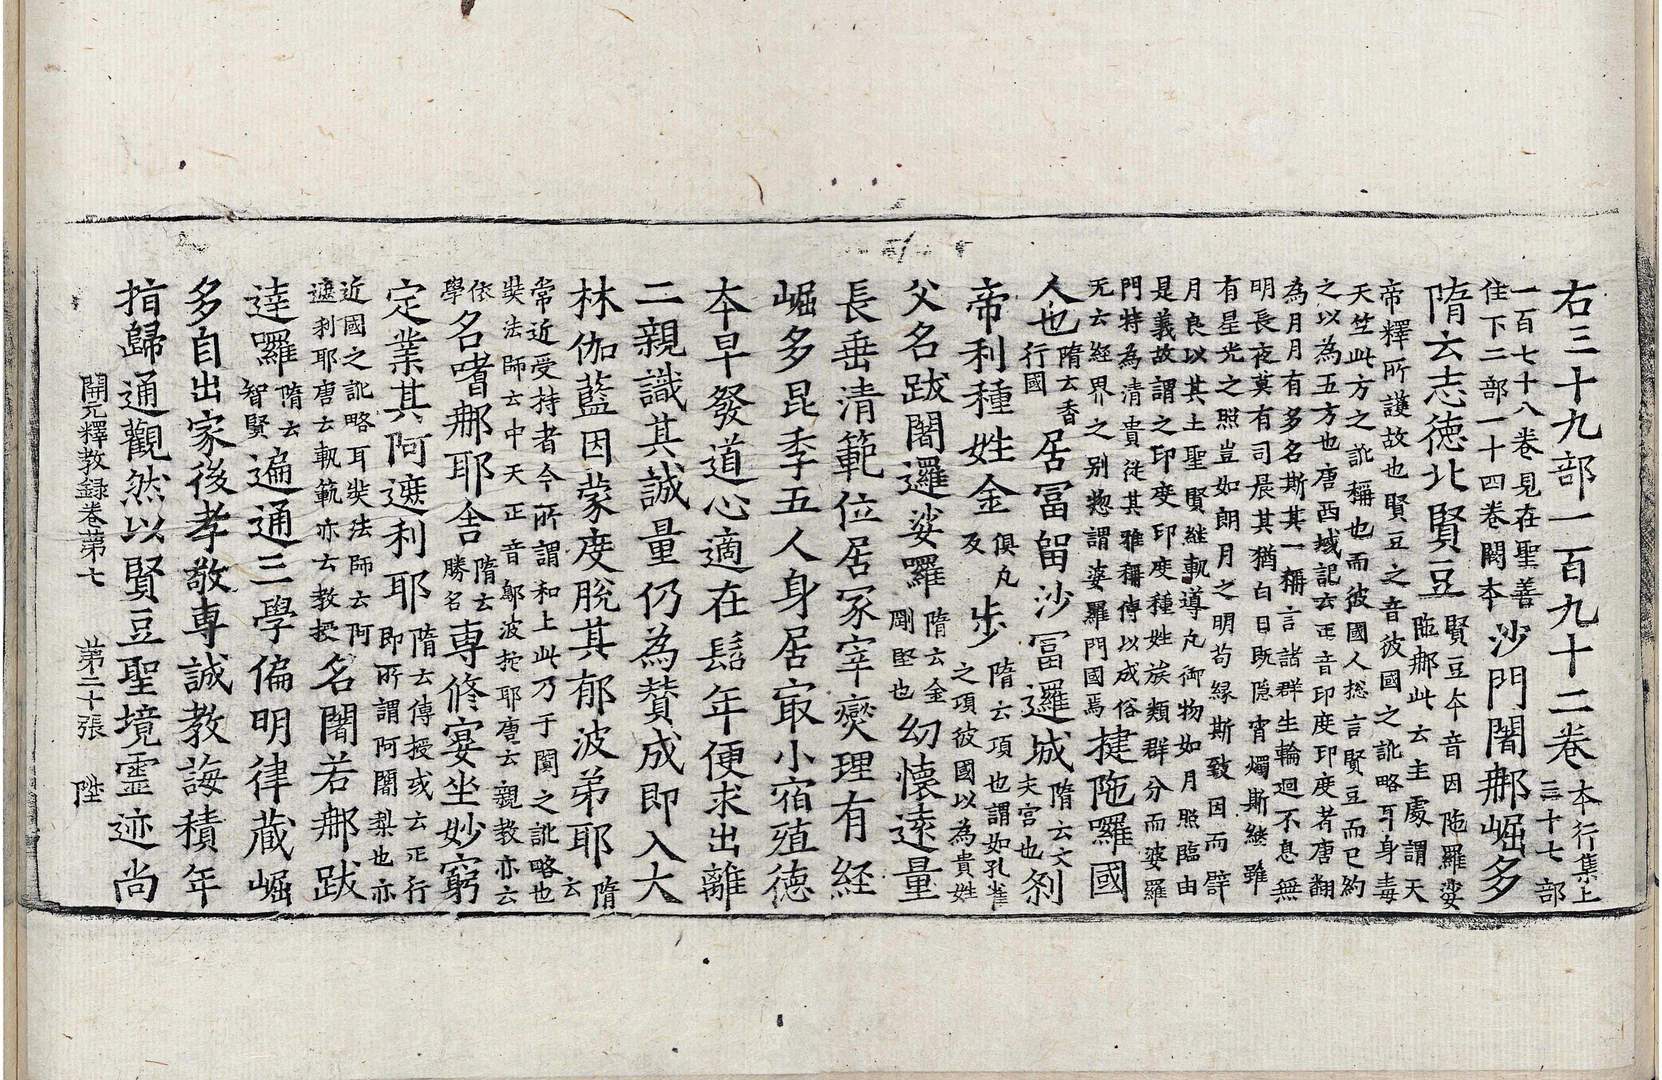 右三十九部一百九十二卷本行集上三十七部
一百七十八卷見在聖善住下二部一十四卷闕本沙門闍那崛多
隋云志德北賢豆賢豆本音因陁羅婆陁那此云主處謂天
帝釋所護故也賢豆之音彼國之訛略耳身毒
天竺此方之訛稱也而彼國人揔言賢豆而已約
之以為五方也唐西域記云正音印度印度者唐翻
為月月有多名斯其一稱言諸群生輪迴不息無
明長夜莫有司晨其猶白日既隱宵燭斯繼雖
有星光之照豈如朗月之明苟緣斯致因而譬
月良以其土聖賢繼軌導凡御物如月照臨由
是義故謂之印度印度種姓族類群分而婆羅
門特為清貴從其雅稱傳以成俗无云經界之別揔謂婆羅門國焉揵陁囉國
人也隋云香行國居冨留沙冨邏城隋云丈夫宮也剎
帝利種姓金俱凡反步隋云項也謂如孔雀之項彼國以為貴姓
父名跋闍邏娑囉隋云金剛堅也幼懷遠量
長垂清範位居冡宰燮理有經
崛多昆季五人身居㝡小宿殖德
本早發道心適在髫年便求出離
二親識其誠量仍為贊成即入大
林伽藍因蒙度脫其郁波弟耶隋云
常近受持者今所謂和上此乃于闐之訛略也
奘法師云中天正音鄔波柁耶唐云親教亦云
依學名嗜那耶舍隋云勝名專修宴坐妙窮
定業其阿遮利耶隋云傳授或云正行即所謂阿闍梨也亦
近國之訛略耳奘法師云阿遮利耶唐云軌範亦云教授名闍若那跋
達囉隋云智賢遍通三學偏明律藏崛
多自出家後孝敬專誠教誨積年
指歸通觀然以賢豆聖境靈迹尚
開元釋教錄卷第七 第二十張 陞